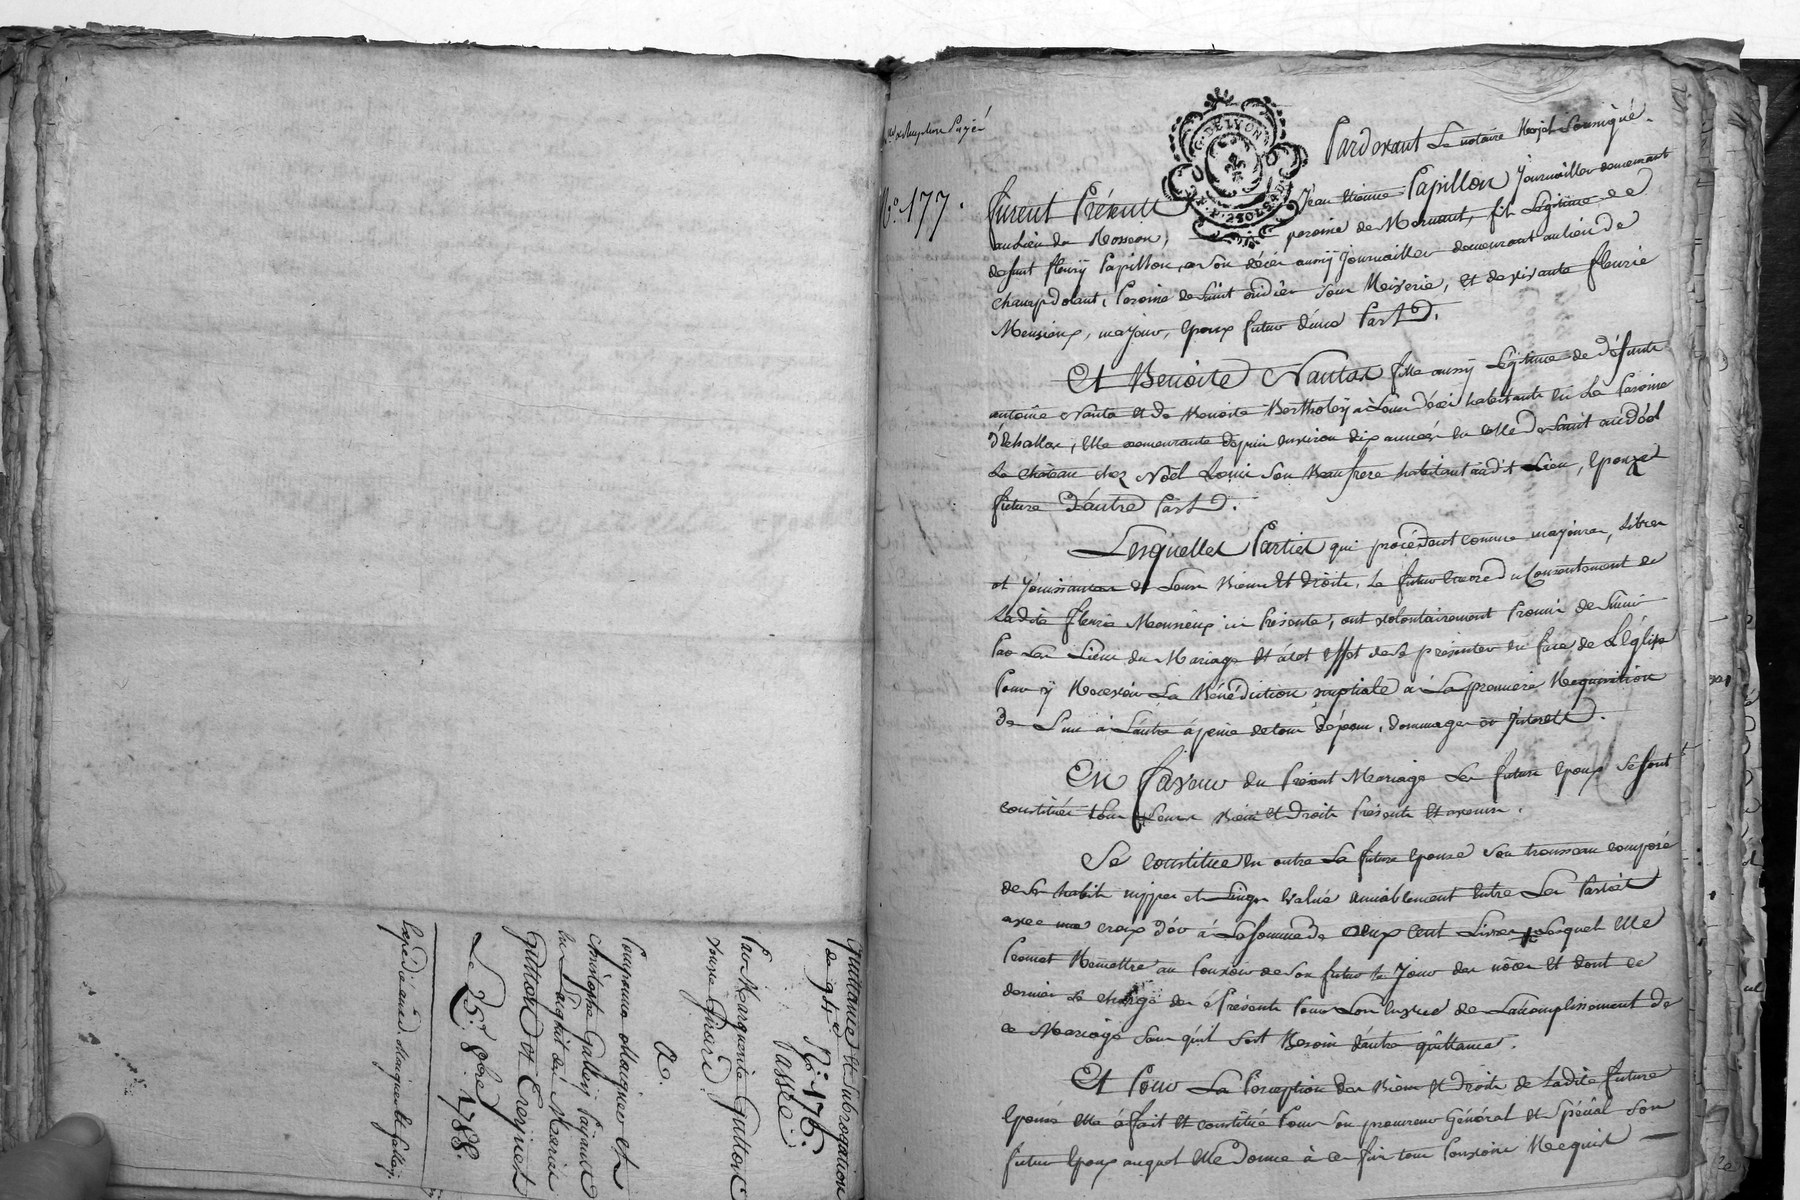 Quittance et subrogation
de 94# N.º 176.
Passée
Par Marguerite Gutton
veuve Girard
a.
Christophe Galley
Gutton et Crépet
Le 25e. 8bre 1788.
N.º 177.
G. DE LYON
Pardevant Le notaire Royal Soussigné.
furent Présents Jean Etienne Papillon Journaillier demeurant
au Lieu du Rosseon, paroisse de Mornant, fils Légitime de
defunt fleury Papillon, à son décès aussy Journaillier demeurant au lieu de
champdolant, Paroisse de Saint andéol sous Riverie, et de vivante fleurie
Monsieux, majeur, Epoux futur d'une Part.
Et Benoite Nanta fille aussy Légitime de défunts
antoine Nanta et de Benoite Bertholey à Leurs décès habitants en La Paroisse
d'Echallas, Elle demeurante depuis Environ dix années en celle de Saint andéol
Le château chez Noël Louis son Beaufrere habitant audit Lieu, Epouze
future d'autre Part.
Lesquelles Parties qui procédent comme majeures, Libres
et Jouissances de Leurs Biens et droits, Le futur Encore du Consentement de
Ladite fleurie Monsieux ici Présente, ont volontairement Promis de S'unir
Par Les Liens du Mariage et à cet Effet de se présenter en face de L'église
Pour y Recevoir La Bénédiction nuptiale à La premiere Requisition
de L'un à L'autre à peine de tous dépens, dommages et Interets.
En faveur du Présent Mariage Les futurs Epoux se sont
constitués tous Leurs Biens et droits Présents et avenir.
Se constitue en outre La future Epouse son trousseau composé
de ses habits nippes et Linges Evalué amiablement Entre Les Parties
avec une croix d'or à La somme de deux Cent Livres Lesquel Elle
Promet Remettre au Pouvoir de son futur le Jour des nôces et dont ce
dernier se charge dès à Présente Pour Lors La suite de L'accomplissement de
ce Mariage sans qu'il soit Besoin d'autre quittance.
Et Pour La Perception des Biens et droits de Ladite future
Epouse Elle a fait et constitué Pour son procureur Général et Spécial son
futur Epoux auquel Elle donne à ces fins tous Pouvoirs Requis